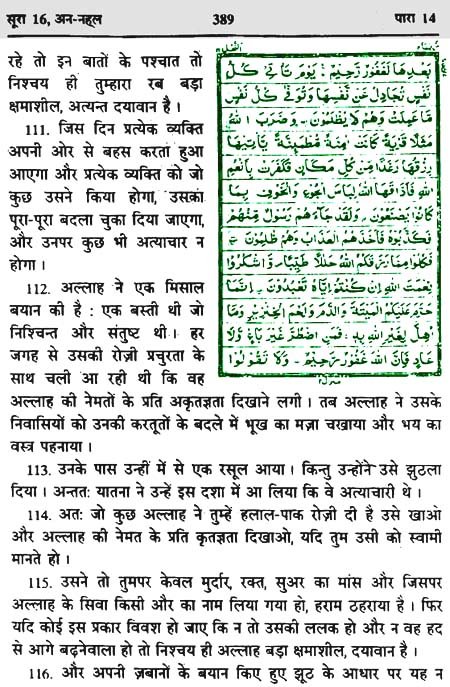 सूरा 16, अन-नह्ल
389
पारा 14
रहे तो इन बातों के पश्चात तो
निश्चय ही तुम्हारा रब बड़ा
क्षमाशील, अत्यन्त दयावान है।
111. जिस दिन प्रत्येक व्यक्ति
अपनी ओर से बहस करता हुआ
आएगा और प्रत्येक व्यक्ति को जो
कुछ उसने किया होगा, उसका
पूरा-पूरा बदला चुका दिया जाएगा,
और उनपर कुछ भी अत्याचार न
होगा।
112. अल्लाह ने एक मिसाल
बयान की है : एक बस्ती थी जो
निश्चिन्त और संतुष्ट थी। हर
जगह से उसकी रोज़ी प्रचुरता के
साथ चली आ रही थी कि वह
بَعْدِهَا لَغَفُورٌ رَّحِيمٌ ۝ يَوْمَ تَأْتِي كُلُّ
نَفْسٍ تُجَادِلُ عَن نَّفْسِهَا وَتُوَفَّىٰ كُلُّ نَفْسٍ
مَّا عَمِلَتْ وَهُمْ لَا يُظْلَمُونَ ۝ وَضَرَبَ اللَّهُ
مَثَلًا قَرْيَةً كَانَتْ آمِنَةً مُّطْمَئِنَّةً يَأْتِيهَا
رِزْقُهَا رَغَدًا مِّن كُلِّ مَكَانٍ فَكَفَرَتْ بِأَنْعُمِ
اللَّهِ فَأَذَاقَهَا اللَّهُ لِبَاسَ الْجُوعِ وَالْخَوْفِ بِمَا
كَانُوا يَصْنَعُونَ ۝ وَلَقَدْ جَاءَهُمْ رَسُولٌ مِّنْهُمْ
فَكَذَّبُوهُ فَأَخَذَهُمُ الْعَذَابُ وَهُمْ ظَالِمُونَ ۝
فَكُلُوا مِمَّا رَزَقَكُمُ اللَّهُ حَلَالًا طَيِّبًا وَاشْكُرُوا
نِعْمَتَ اللَّهِ إِن كُنتُمْ إِيَّاهُ تَعْبُدُونَ ۝ إِنَّمَا
حَرَّمَ عَلَيْكُمُ الْمَيْتَةَ وَالدَّمَ وَلَحْمَ الْخِنزِيرِ وَمَا
أُهِلَّ لِغَيْرِ اللَّهِ بِهِ فَمَنِ اضْطُرَّ غَيْرَ بَاغٍ وَلَا
عَادٍ فَإِنَّ اللَّهَ غَفُورٌ رَّحِيمٌ ۝ وَلَا تَقُولُوا
अल्लाह की नेमतों के प्रति अकृतज्ञता दिखाने लगी। तब अल्लाह ने उसके
निवासियों को उनकी करतूतों के बदले में भूख का मज़ा चखाया और भय का
वस्त्र पहनाया।
113. उनके पास उन्हीं में से एक रसूल आया। किन्तु उन्होंने उसे झुठला
दिया। अन्तत: यातना ने उन्हें इस दशा में आ लिया कि वे अत्याचारी थे।
114. अत: जो कुछ अल्लाह ने तुम्हें हलाल-पाक रोज़ी दी है उसे खाओ
और अल्लाह की नेमत के प्रति कृतज्ञता दिखाओ, यदि तुम उसी को स्वामी
मानते हो।
115. उसने तो तुमपर केवल मुर्दार, रक्त, सुअर का मांस और जिसपर
अल्लाह के सिवा किसी और का नाम लिया गया हो, हराम ठहराया है। फिर
यदि कोई इस प्रकार विवश हो जाए कि न तो उसकी ललक हो और न वह हद
से आगे बढ़नेवाला हो तो निश्चय ही अल्लाह बड़ा क्षमाशील, दयावान है।
116. और अपनी ज़बानों के बयान किए हुए झूठ के आधार पर यह न